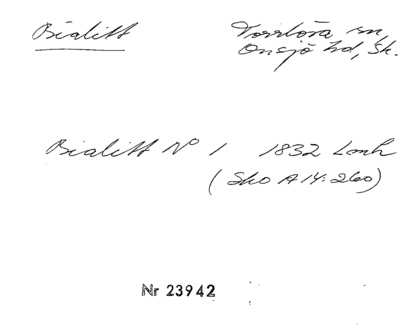 Bialitt
Torrlösa sn,
Onsjö hd, Sk.
Bialitt No 1 1832 Lanh
(Sko A 14:260)
Nr 23942